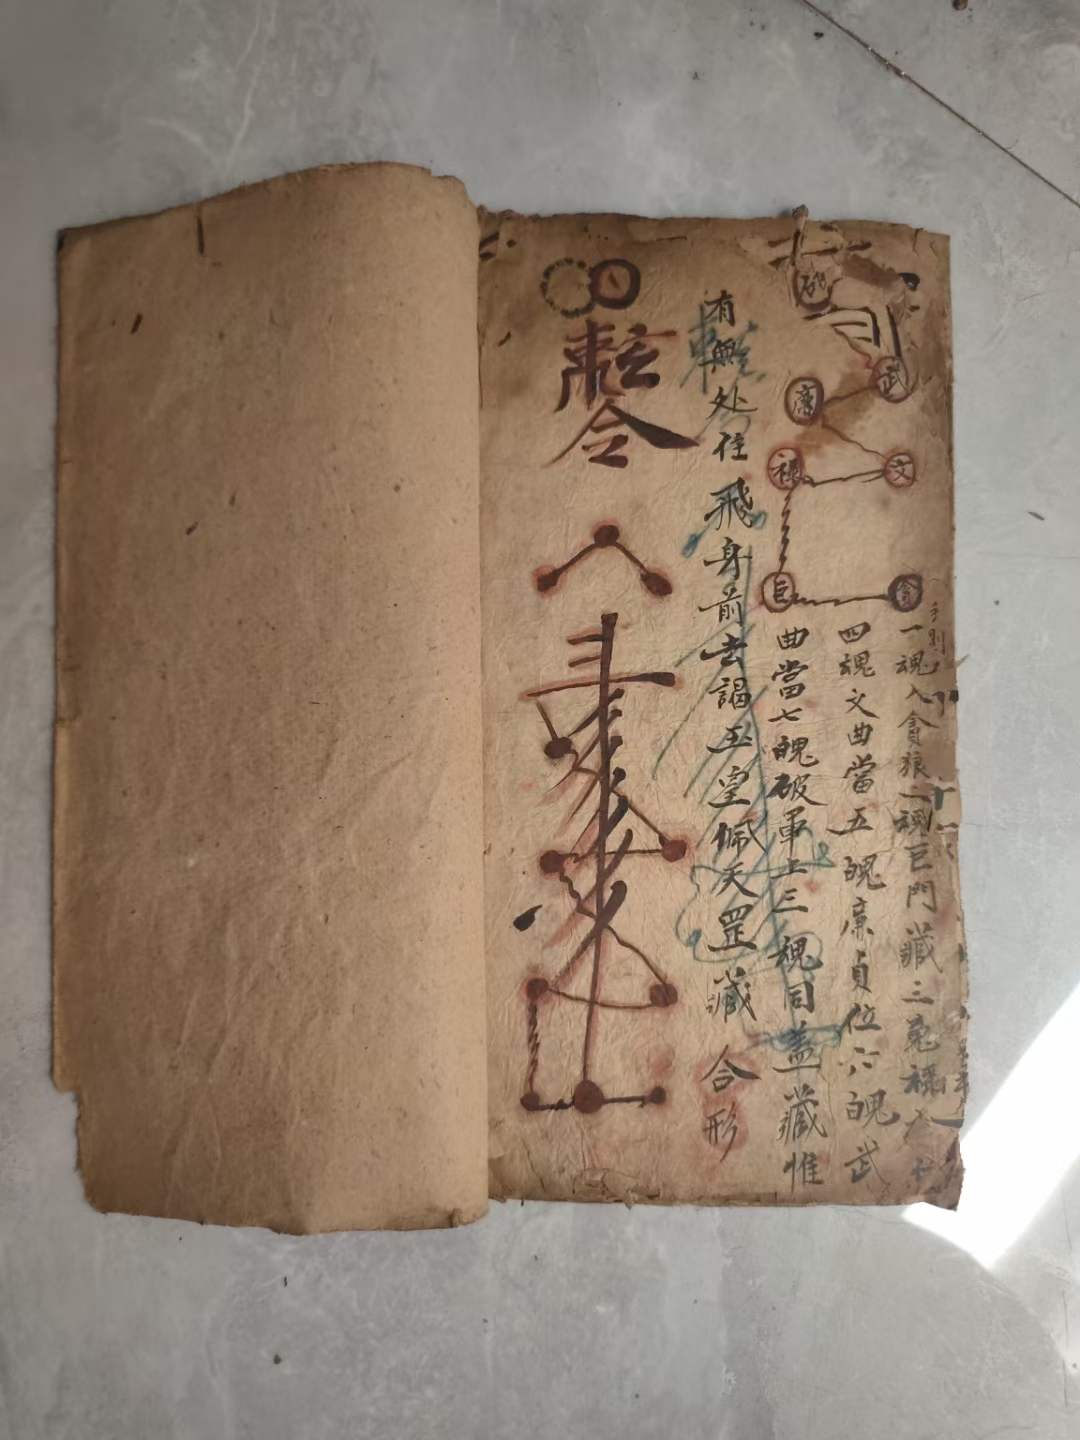 破
武
廉
文
禄
巨
貪
一魂入貪狼二魂巨門藏三魂禄
四魂文曲當五魄廉貞位六魄武
曲當七魄破軍上三魂同蓋藏惟
有無处住飛身前去謁玉皇佩天罡藏 合形
令